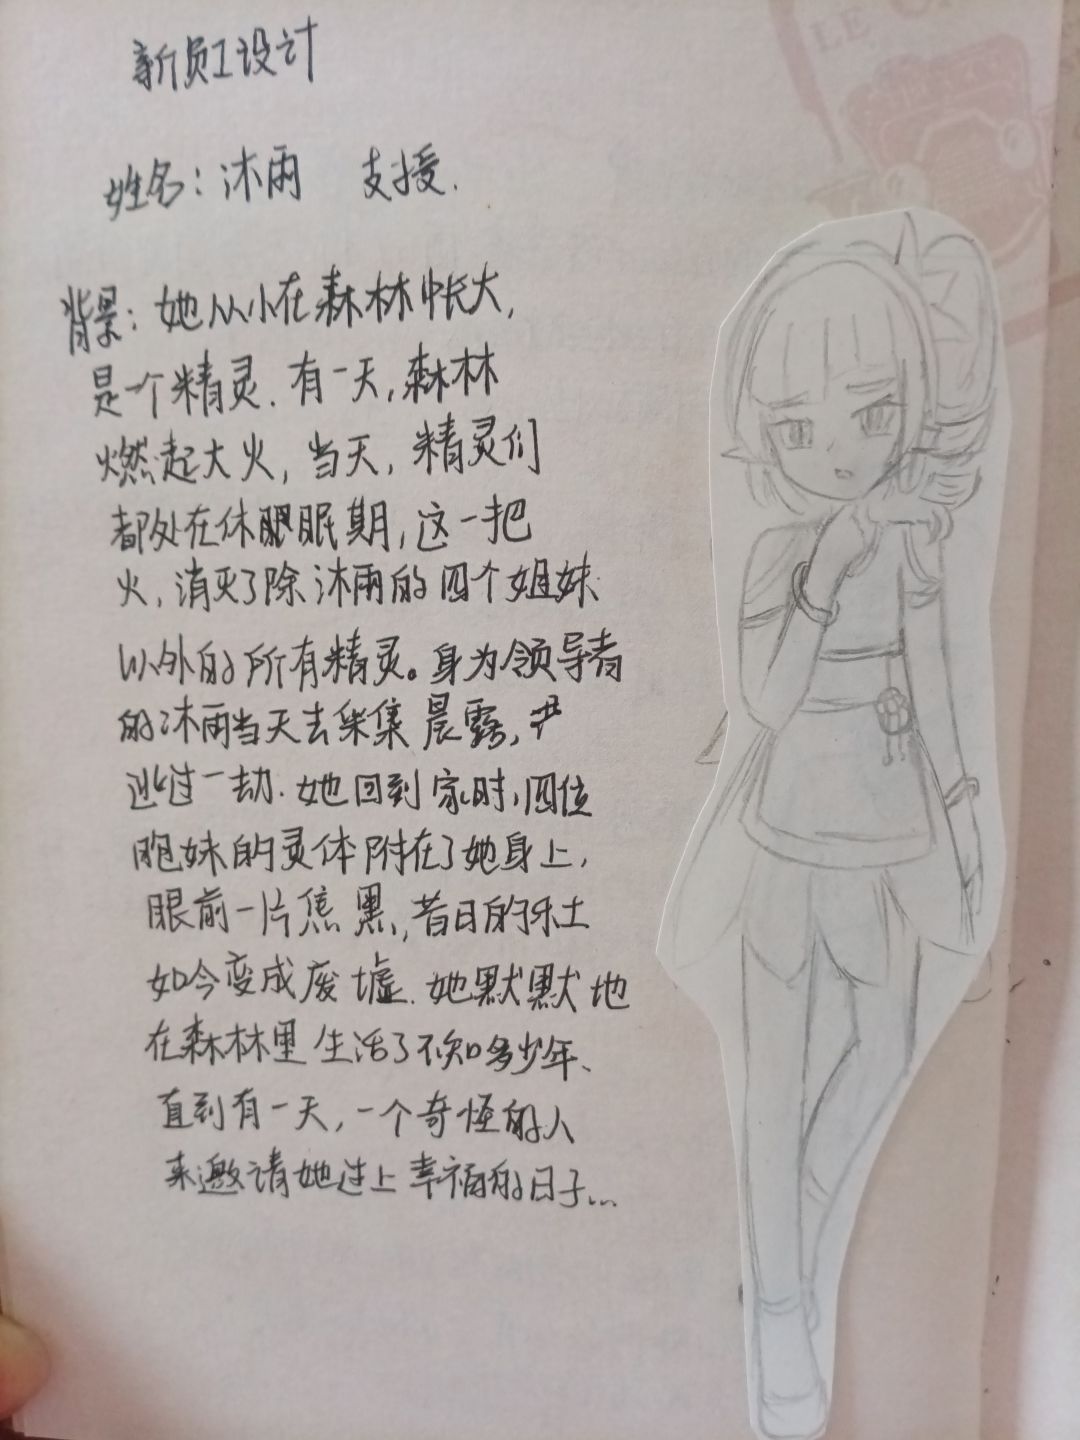 新员工设计
姓名：沐雨 支援.
背景：她从小在森林中长大,
是个精灵.有一天,森林
燃起大火,当天,精灵们
都处在休眠期,这一把
火,消灭了除沐雨的四个姐妹
以外的所有精灵。身为领导者
的沐雨当天去采集晨露,
逃过一劫.她回到家时,四位
胞妹的灵体附在了她身上,
眼前一片焦黑,昔日的乐土
如今变成废墟.她默默地
在森林里生活了不知多少年、
直到有一天,一个奇怪的人
来邀请她过上幸福的日子...
LE